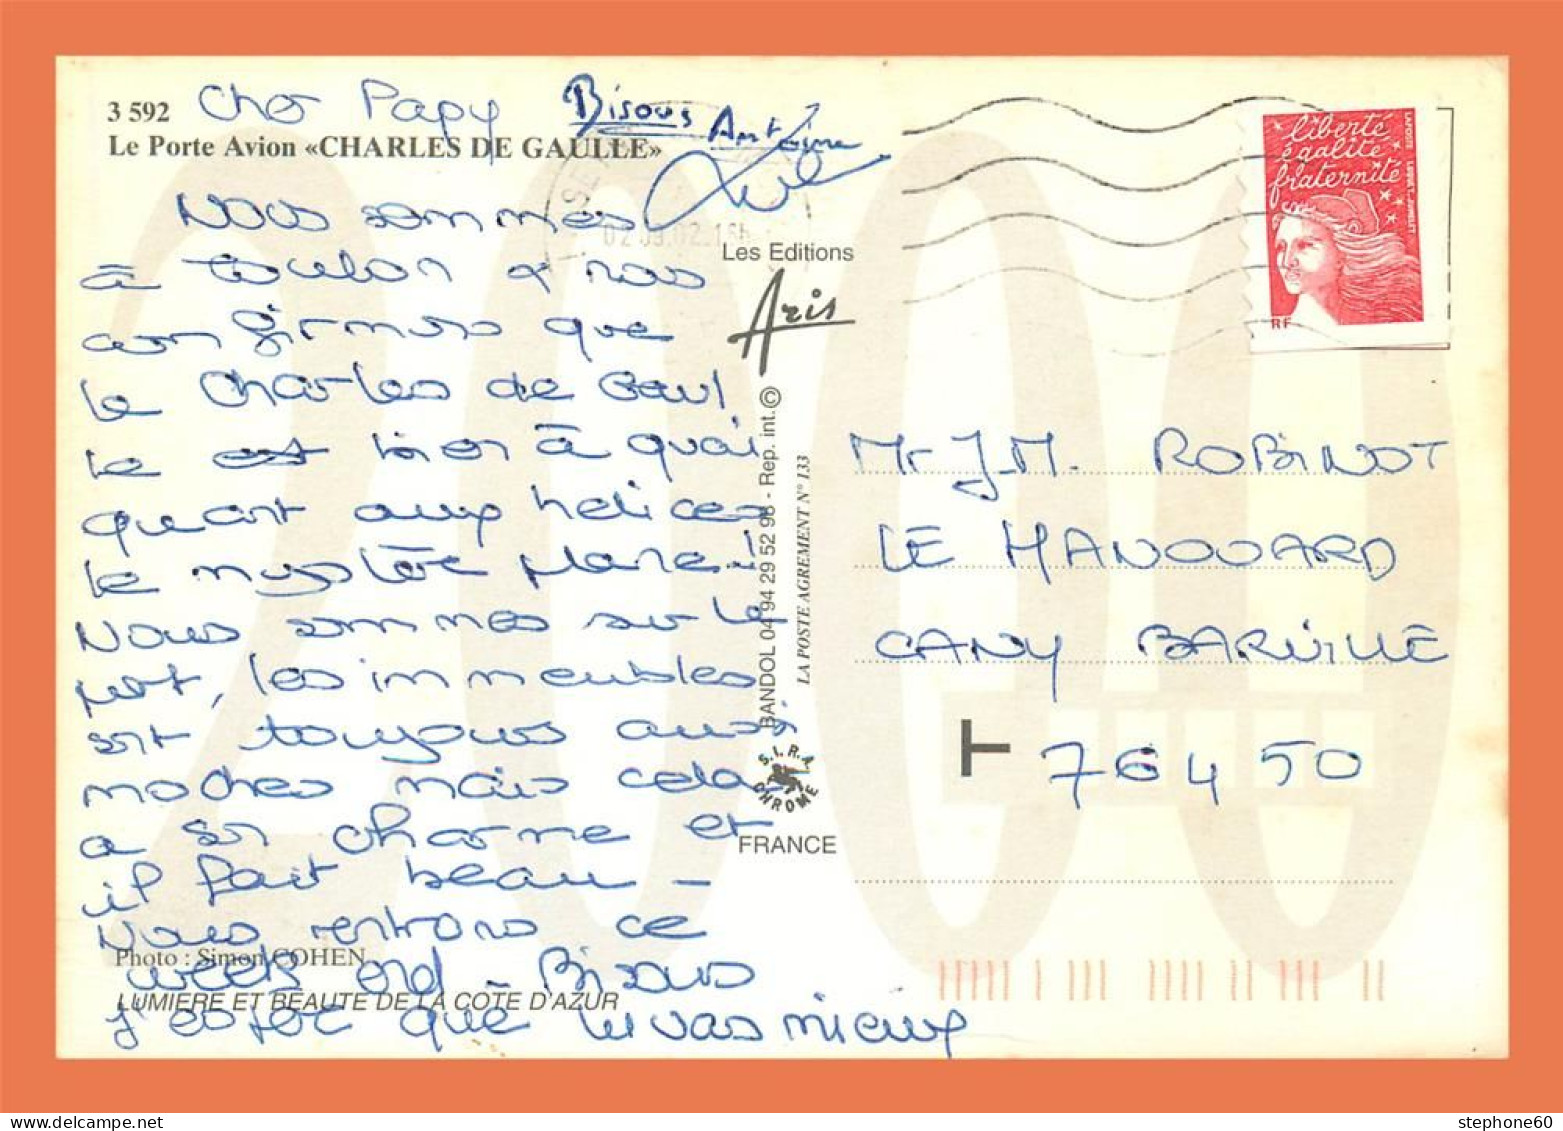 3 592 Cher Papy
Bisous Antoine
Le Porte Avion «CHARLES DE GAULLE»
Nous sommes
à Toulon et nous
confirmons que
le Charles de Gaul
le est bien à quai
quant aux hélices
le mystère plane..!
Nous sommes sur le
port, les immeubles
sont toujours aussi
moches mais cela
a son charme et
il fait beau -
Nous rentrons ce
week end - Bisous
J'espère que tu vas mieux
Photo : Simon COHEN
LUMIERE ET BEAUTE DE LA COTE D'AZUR
02.09.02.
Les Editions
Aris
BANDOL 04 94 29 52 98 - Rep. int. ©
LA POSTE AGREMENT N° 133
S.I.R.A.
CHROME
FRANCE
liberté
égalité
fraternité
LA POSTE
RF
Mr J.M. ROBINOT
LE HANOUARD
CANY BARVILLE
T 76450
stephone60